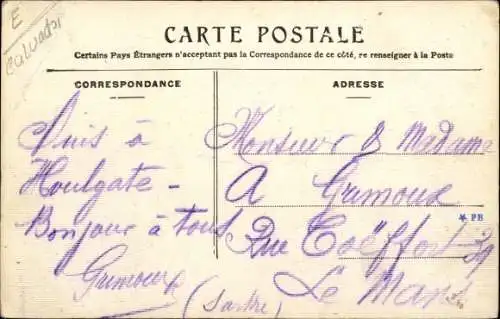 E
Calvados
CARTE POSTALE
Certains Pays Étrangers n'acceptant pas la Correspondance de ce côté, se renseigner à la Poste
CORRESPONDANCE
ADRESSE
Suis à
Houlgate -
Bonjour à tous
Grimoux
Monsieur & Madame
A Grimoux
Rue Coëffort 39
Le Mans
(Sarthe)
PB